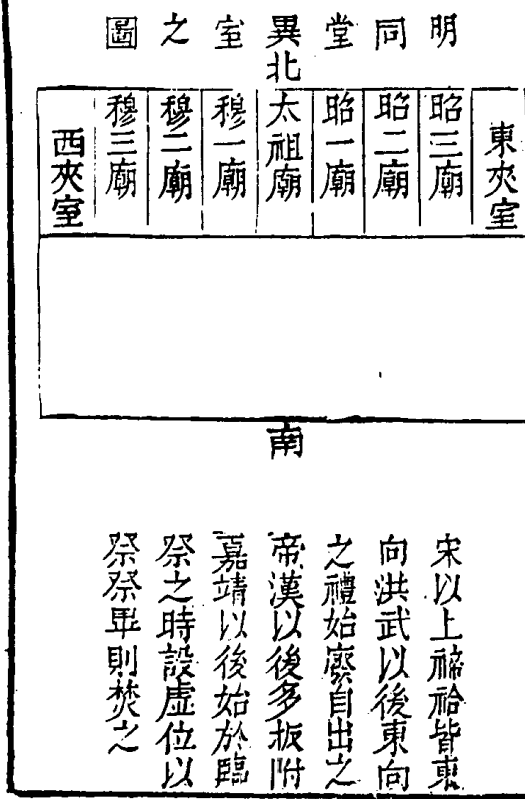 明同堂異室之圖
北
東夾室
昭三廟
昭二廟
昭一廟
太祖廟
穆一廟
穆二廟
穆三廟
西夾室
南
宋以上禘祫皆東
向洪武以後東向
之禮始廢自出之
帝漢以後多扳附
嘉靖以後始於臨
祭之時設虛位以
祭祭畢則焚之